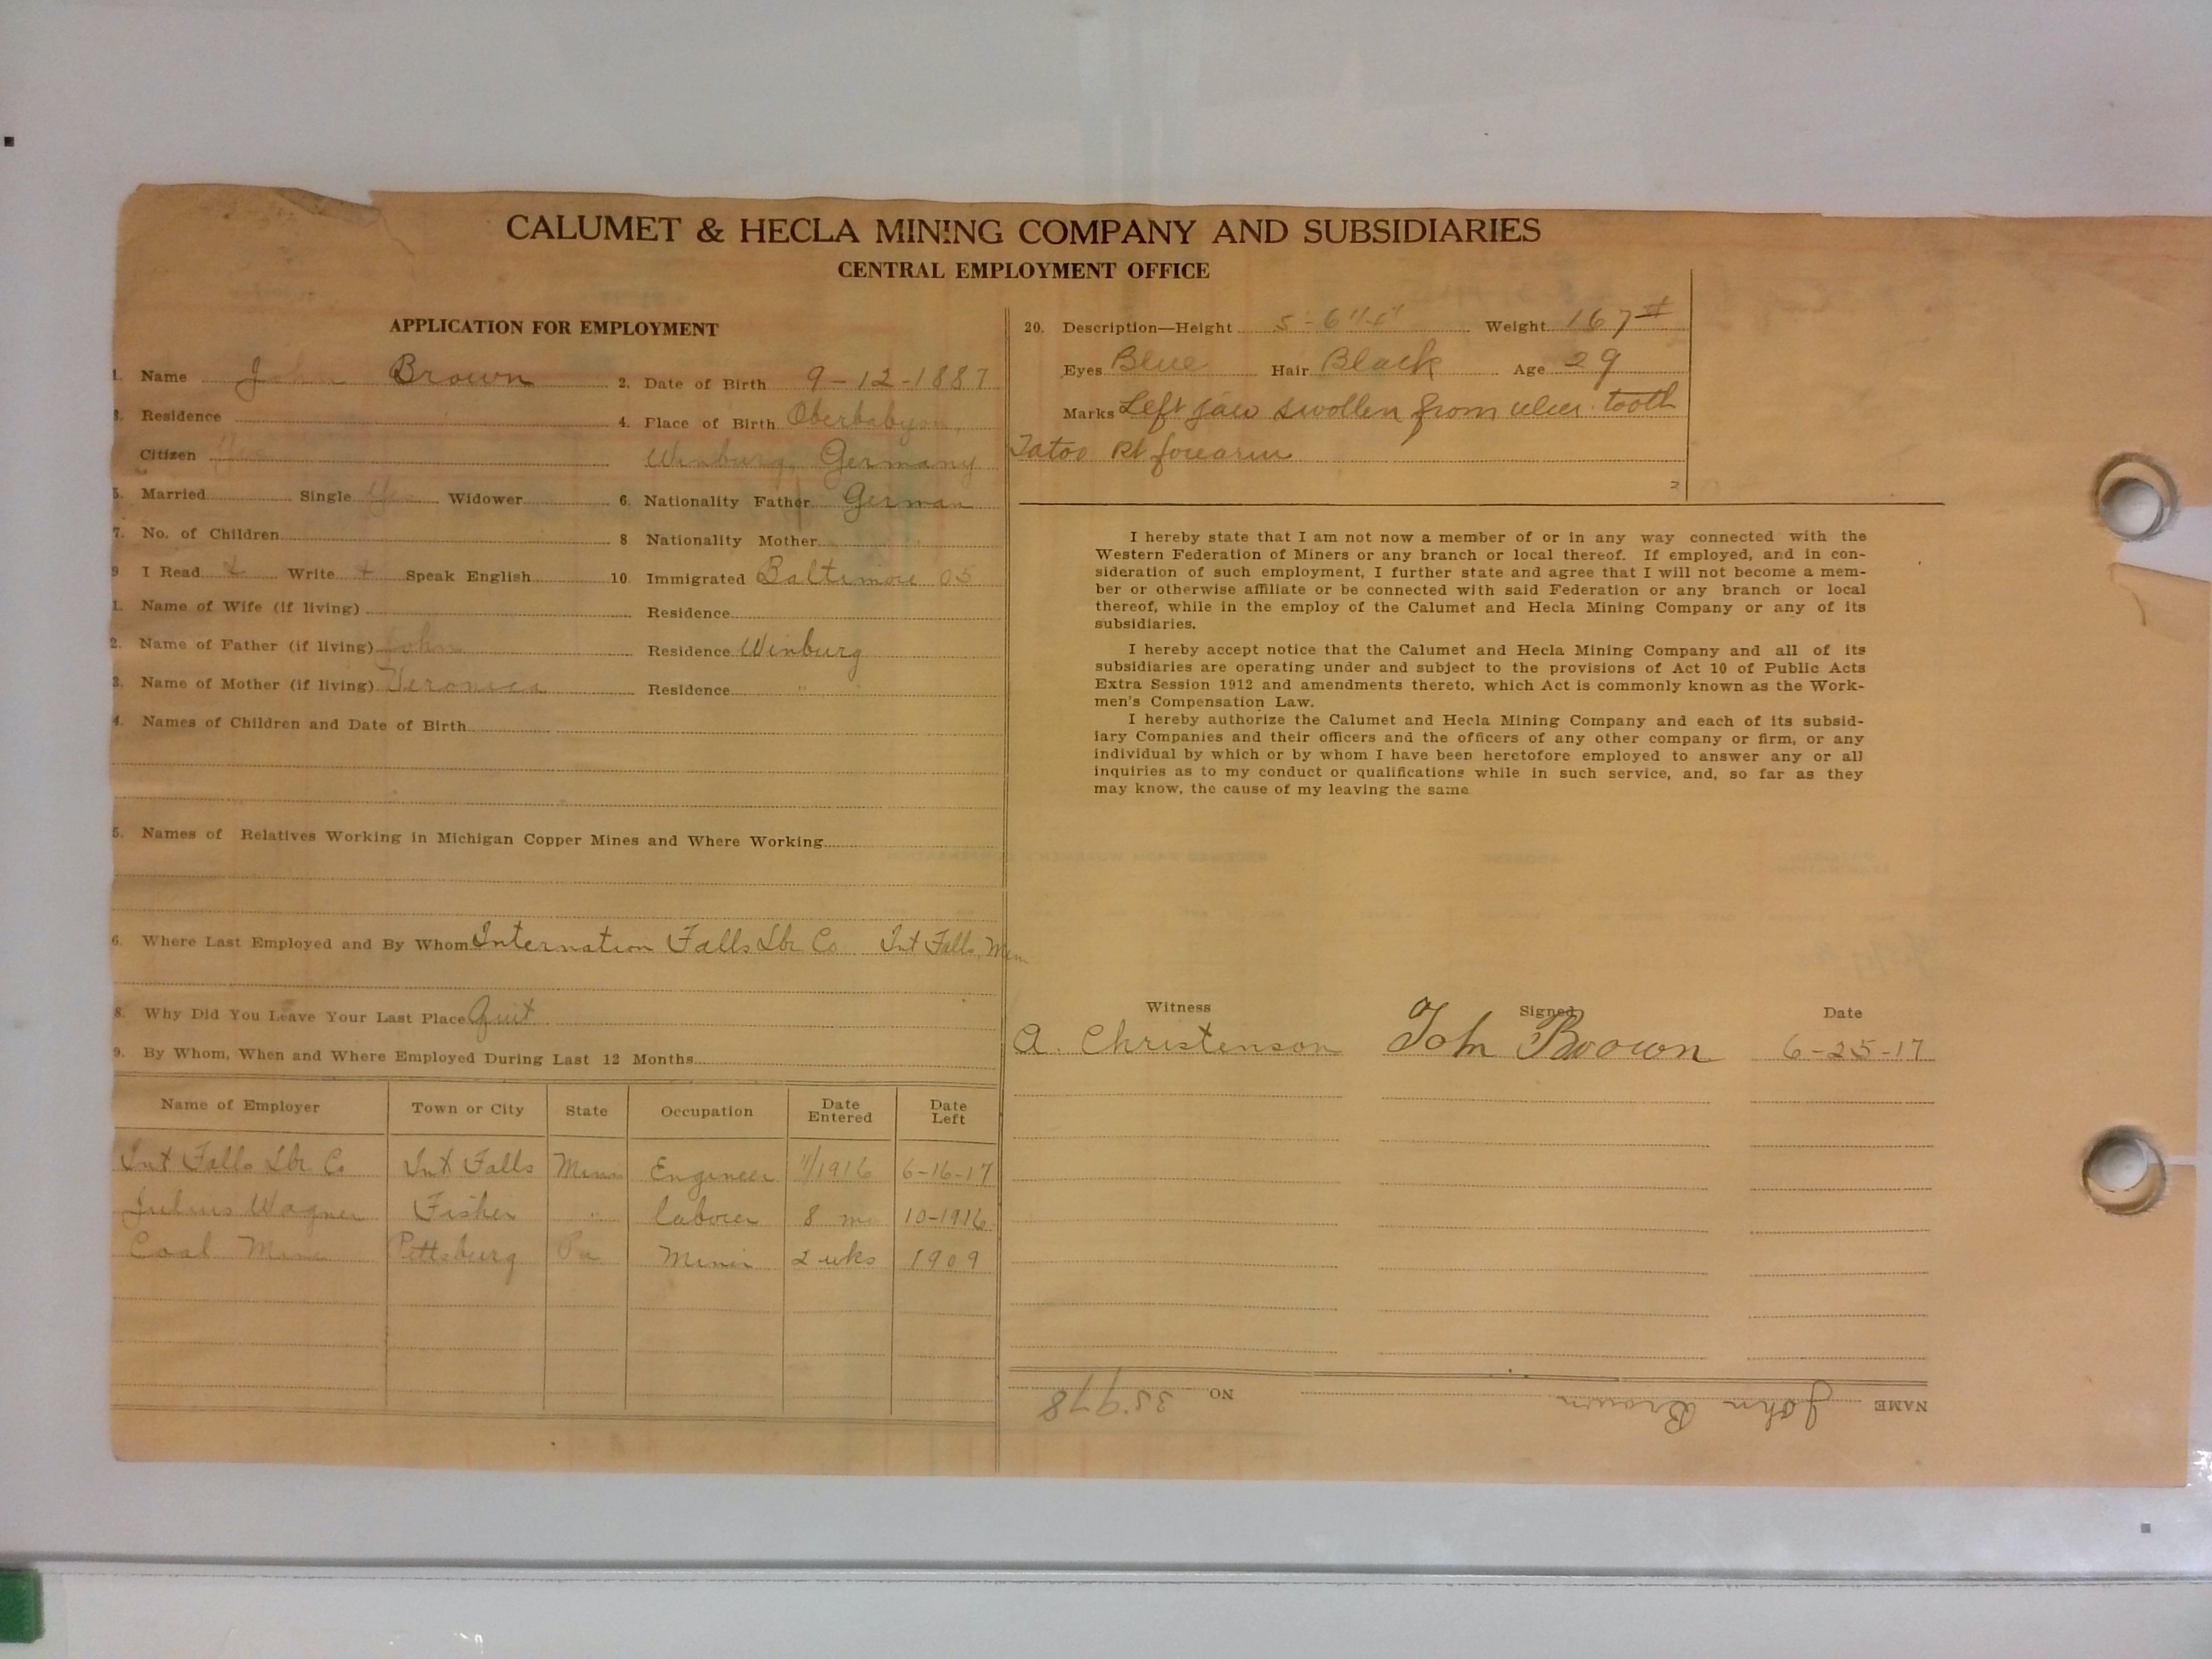 CALUMET & HECLA MINING COMPANY AND SUBSIDIARIES
CENTRAL EMPLOYMENT OFFICE
APPLICATION FOR EMPLOYMENT
1. Name John Brown 2. Date of Birth 9-12-1887
3. Residence 4. Place of Birth
Citizen Winburg, Germany
5. Married Single Yes Widower 6. Nationality Father German
7. No. of Children 8 Nationality Mother
9 I Read Write Speak English 10 Immigrated Baltimore 05
1. Name of Wife (if living) Residence
2. Name of Father (if living) John Residence Winburg
3. Name of Mother (if living) Veronica Residence "
4. Names of Children and Date of Birth
5. Names of Relatives Working in Michigan Copper Mines and Where Working
6. Where Last Employed and By Whom Internation Falls Lbr Co Int Falls, Minn
8. Why Did You Leave Your Last Place Quit
9. By Whom, When and Where Employed During Last 12 Months
Name of Employer Town or City State Occupation Date Entered Date Left
Int Falls Lbr Co Int Falls Minn Engineer 11/1916 6-16-17
Julius Wagner Fisher " laborer 8 mo 10-1916
Coal Mine Pittsburg Pa Miner 2 wks 1909
20. Description—Height 5-6 1/4" Weight 167#
Eyes Blue Hair Black Age 29
Marks Left jaw swollen from ulcer. tooth
Tatoo Rt forearm
2
I hereby state that I am not now a member of or in any way connected with the
Western Federation of Miners or any branch or local thereof. If employed, and in con-
sideration of such employment, I further state and agree that I will not become a mem-
ber or otherwise affiliate or be connected with said Federation or any branch or local
thereof, while in the employ of the Calumet and Hecla Mining Company or any of its
subsidiaries.
I hereby accept notice that the Calumet and Hecla Mining Company and all of its
subsidiaries are operating under and subject to the provisions of Act 10 of Public Acts
Extra Session 1912 and amendments thereto, which Act is commonly known as the Work-
men's Compensation Law.
I hereby authorize the Calumet and Hecla Mining Company and each of its subsid-
iary Companies and their officers and the officers of any other company or firm, or any
individual by which or by whom I have been heretofore employed to answer any or all
inquiries as to my conduct or qualifications while in such service, and, so far as they
may know, the cause of my leaving the same
Witness Signed Date
A. Christenson John Brown 6-25-17
NAME John Brown NO 35978